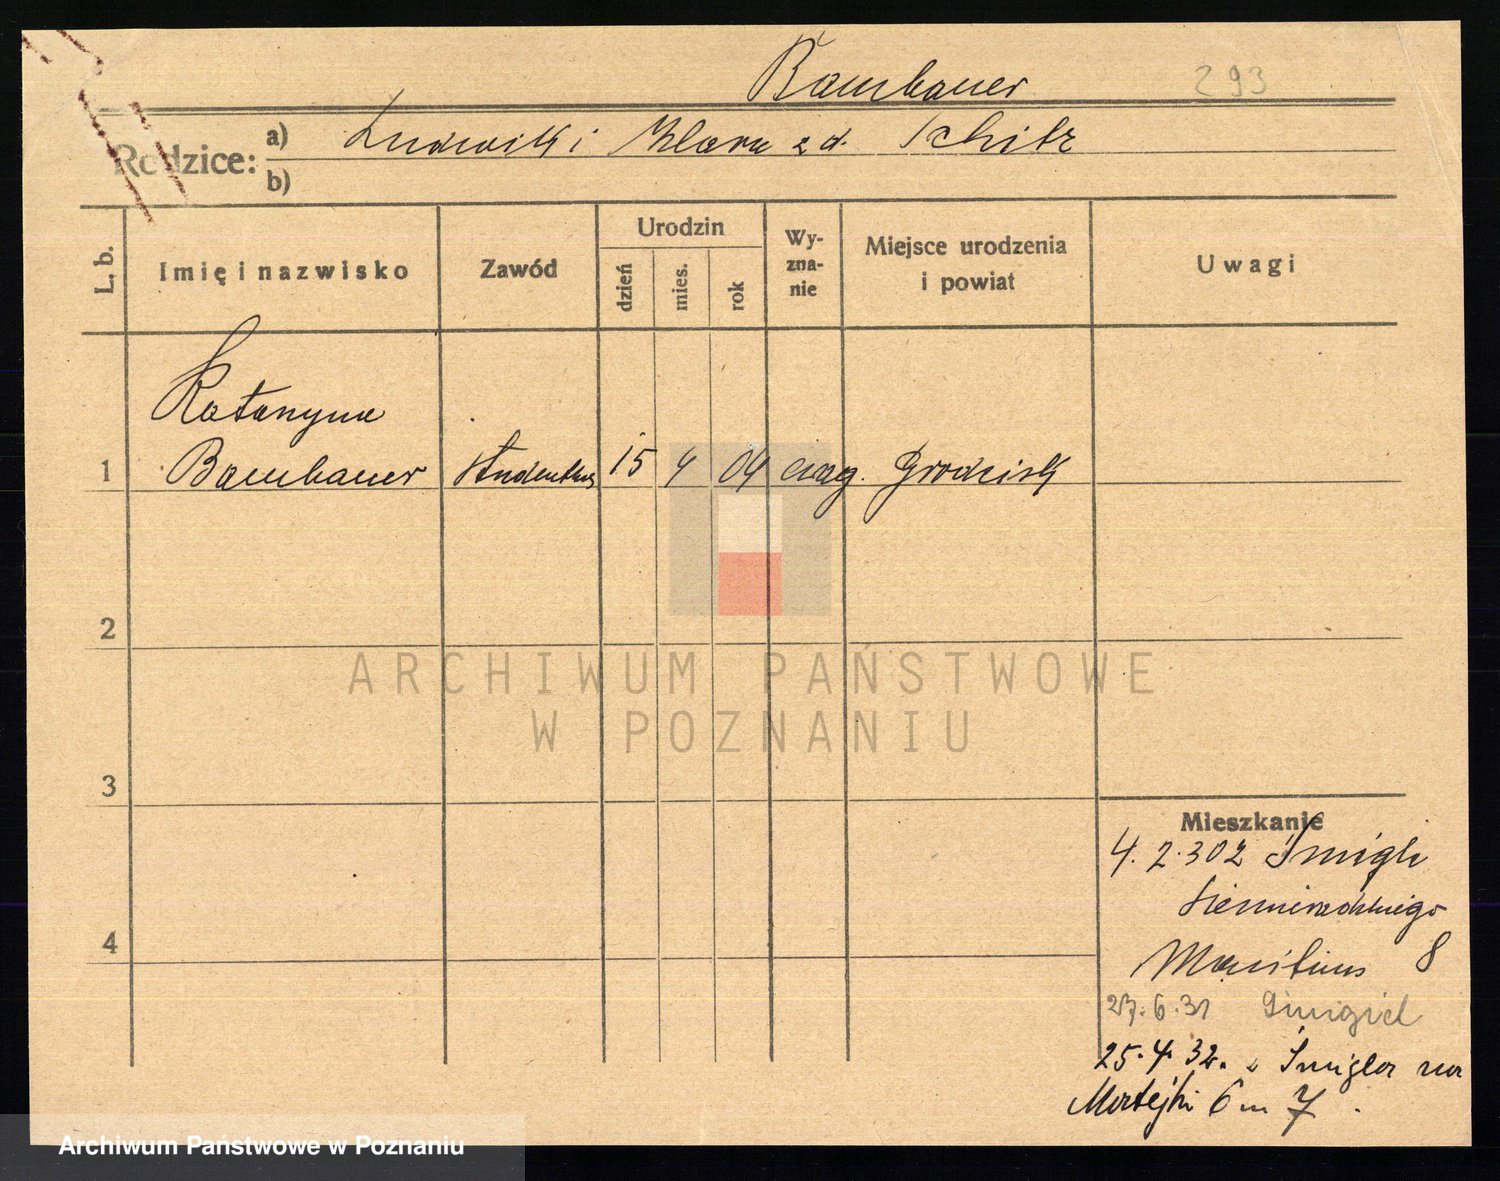 Bambauer 293
Rodzice: a) Ludwik i Klara z d. Schitz
b)
L. b. Imię i nazwisko Zawód Urodzin dzień mies. rok Wy-zna-nie Miejsce urodzenia i powiat Uwagi
Katarzyna
1 Bambauer studentka 15 4 04 ewag. Grodzisk
2
ARCHIWUM PAŃSTWOWE
W POZNANIU
3
Mieszkanie
4. 2. 30 z Śmigla
Siemiradzkiego
4
Maritius 8
27. 6. 31 Śmigiel
25. 4. 32. z Śmigla na
Matejki 6 m 7.
Archiwum Państwowe w Poznaniu